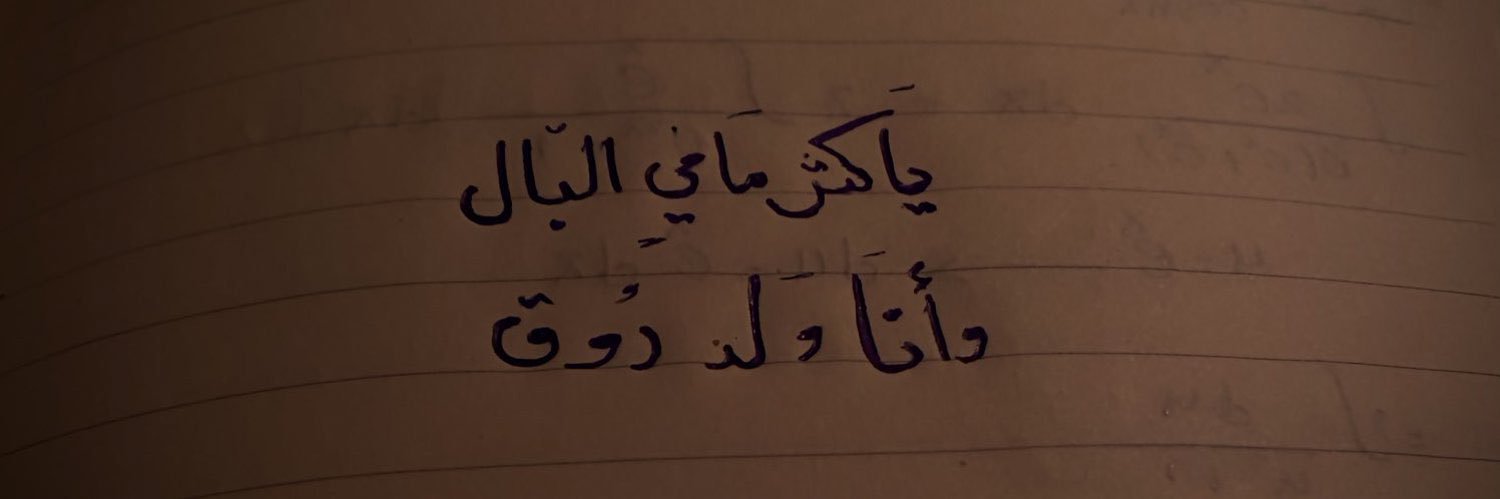 يَاكثر مَا فيِ البّال
وأنَا وَلد ذُوق